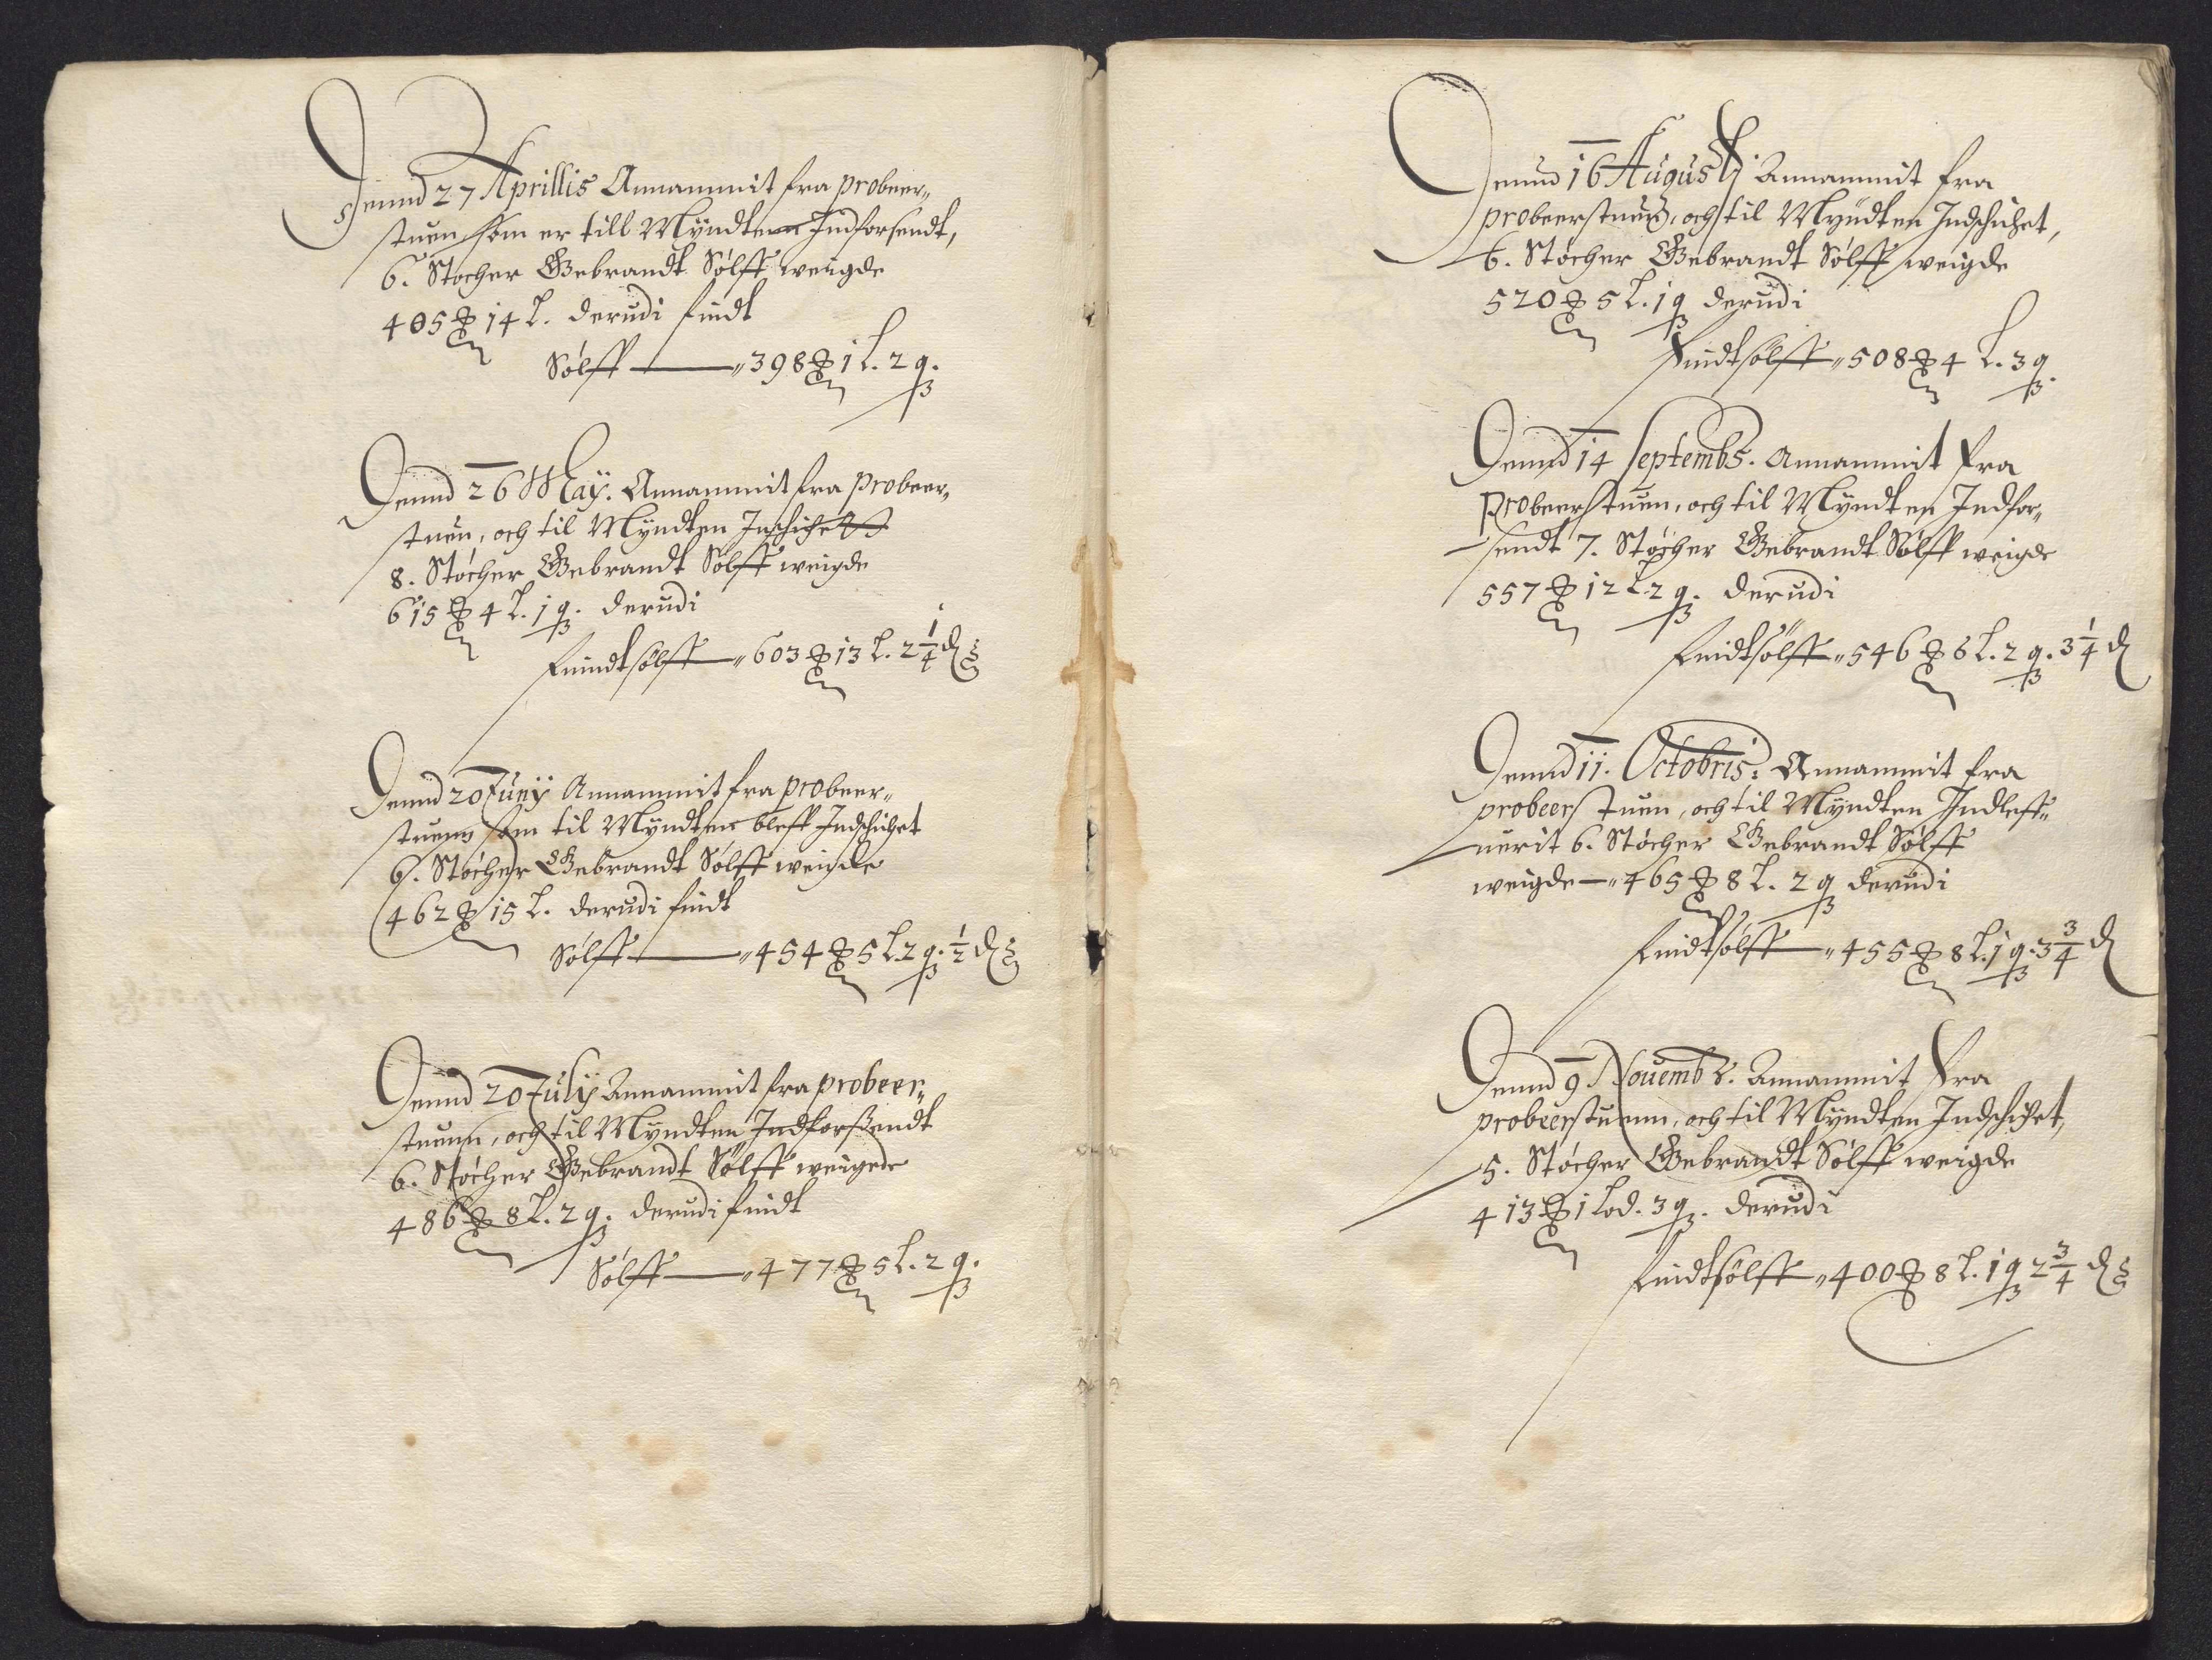 Dennd 27 Aprillis Annammit fra probeer„
stuen som er till Myndtenn Indforsendt,
6. Støcher Gebrandt Sølff weigde
405 ℔ 14 L. derudi findt
Sølff —— „ 398 ℔ 1 L. 2 q.
Dennd 26 May. Annammit fra probeer„
stuen, och til Myndten Inschichett
8. Støcher Gebrandt Sølff weigde
615 ℔ 4 L. 1 q. derudi
fiindtsølff — „ 603 ℔ 13 L. 2 1/4 ₰
Dennd 20 Juny Annammit fra probeer„
stuenn som til Myndten bleff Indschichet
6. Støcher Gebrandt Sølff weigde
462 ℔ 15 L. derudi findt
Sølff —— „ 454 ℔ 5 L. 2 q. 1/2 ₰
Dennd 20 July Annammit fra probeer„
stuenn, och til Myndten Indforsendt
6. Støcher Gebrandt Sølff weigede
486 ℔ 8 L. 2 q. derudi findt
Sølff —— „ 477 ℔ 5 L. 2 q.
Dennd 16 Augusti Annammit fra
probeerstuen, och til Myndten Indschichet,
6. Støcher Gebrandt Sølff weigde
520 ℔ 5 L. 1 q derudi
Findtsølff „ 508 ℔ 4 L. 3 q.
Dennd 14 Septembs. Annammit fra
Probeerstuen, och til Myndten Indfor„
sendt 7. Støcher Gebrandt Sølff weigde
557 ℔ 12 L. 2 q. derudi
findtsølff „ 546 ℔ 6 L. 2 q. 3 1/4 ₰
Dennd 11. Octobris: Annammit fra
probeerstuen, och til Myndten Indleff„
uerit 6. Støcher Gebrandt Sølff
weigde — „ 465 ℔ 8 L. 2 q derudi
findtsølff — „ 455 ℔ 8 L. 1 q. 3 3/4 ₰
Dennd 9 Nouembs. Annammit Fra
probeerstuenn, och til Myndten Indschichet,
5. Støcher Gebrandt Sølff weigde
413 ℔ 1 Lod. 3 q. derudi
findtsølff „ 400 ℔ 8 L. 1 q 2 3/4 ₰